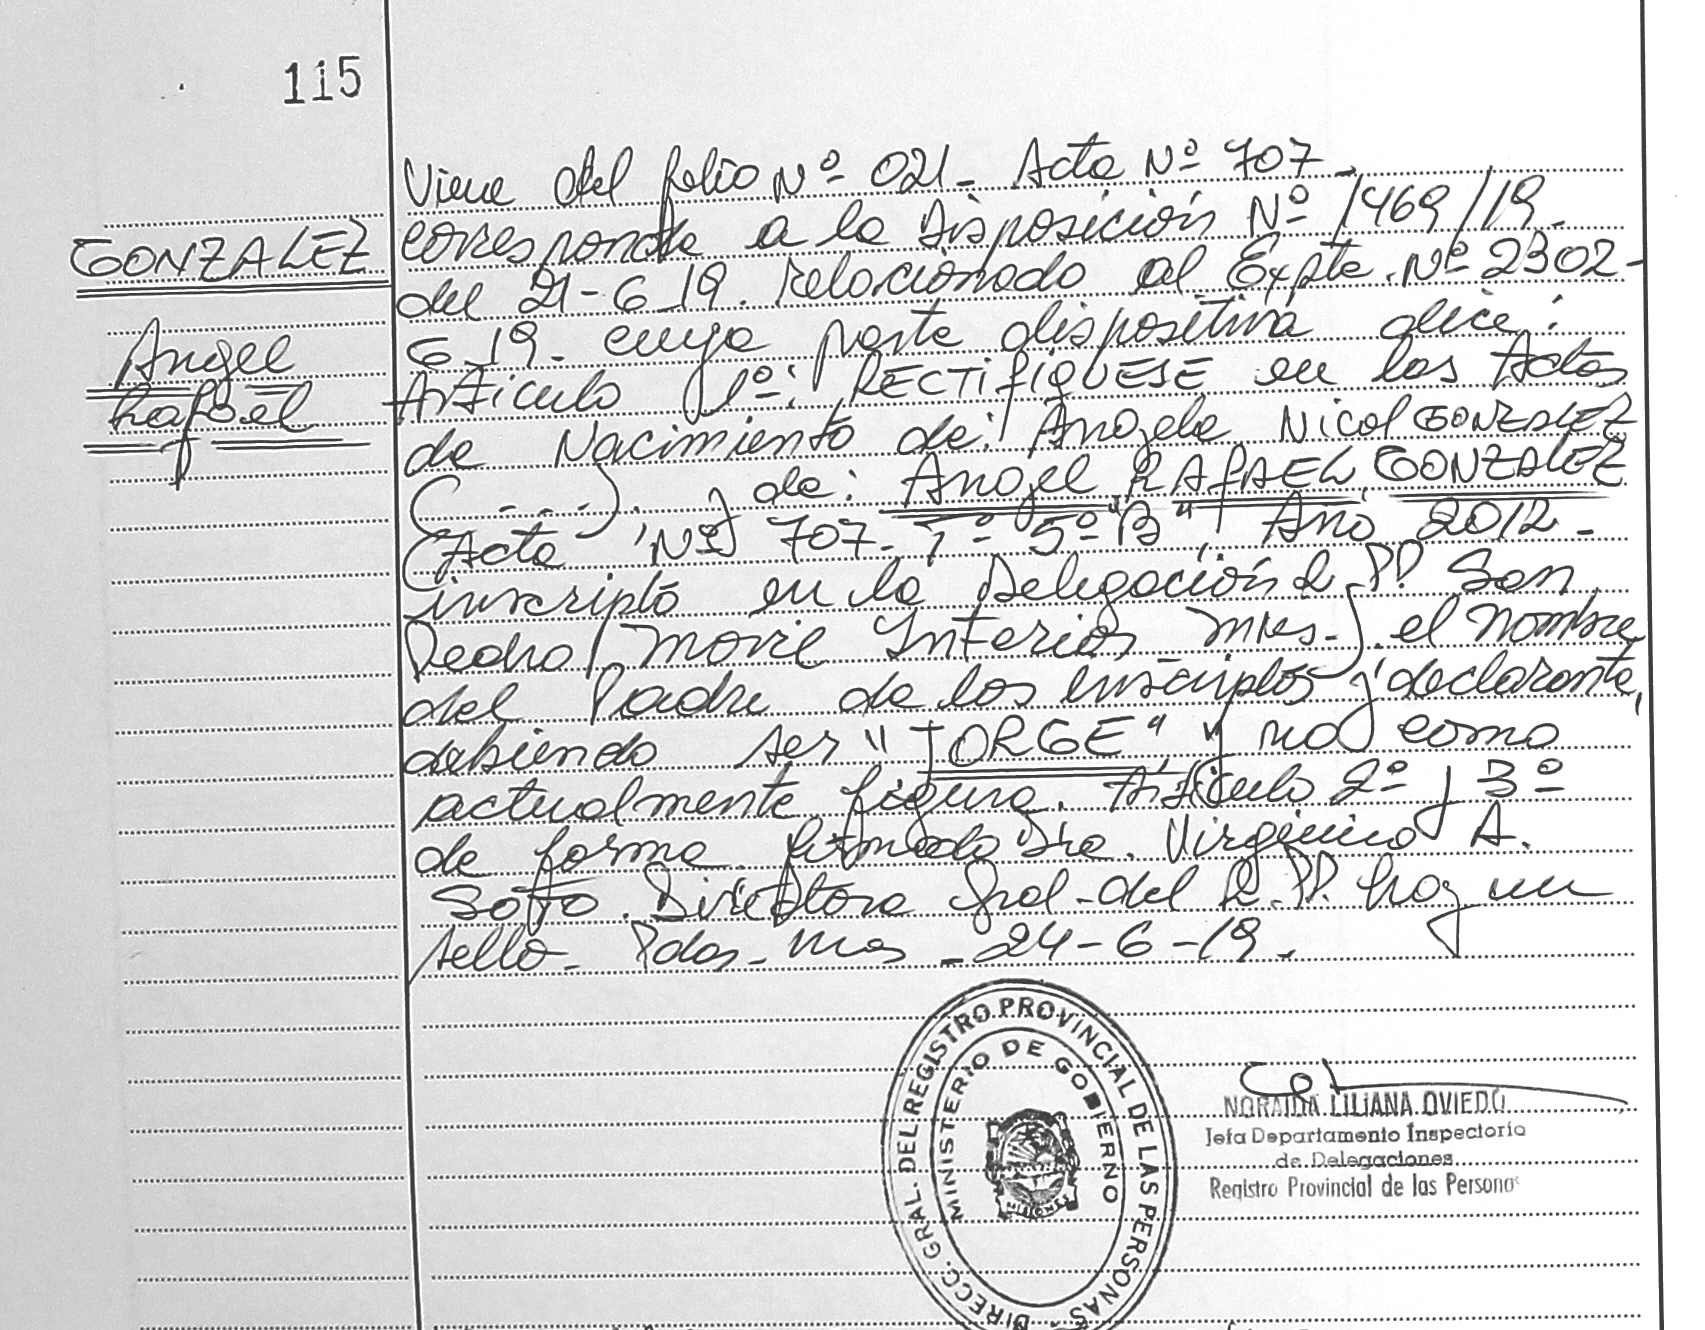 115
Viene del folio Nº 021- Acta Nº 707-
corresponde a la Disposición Nº 1469/19.
GONZALEZ
del 21-6-19. Relacionado al Expte. Nº 2302-
Angel
6-19- cuya parte dispositiva dice:
Rafael
Articulo 1º: RECTIFIQUESE en las Actas
de Nacimiento de: Angela Nicol GONZALEZ
(- - - -). y de: Angel RAFAEL GONZALEZ
(Acta Nº 707- Tº 5º "B", Año 2012-
inscripto en la Delegación R.PP. San
Pedro Movil Interior Mnes-). el nombre
del Padre de los inscriptos y declarante,
debiendo ser "JORGE" y no como
actualmente figura. Articulo 2º y 3º
de forma. Firmado Dra. Virginia A.
Sotto. Directora Gral- del R.PP. hay un
sello- Pdas- Mnes -24-6-19.
DIRECC. GRAL. DEL REGISTRO PROVINCIAL DE LAS PERSONAS
MINISTERIO DE GOBIERNO
MISIONES
NORAIDA LILIANA OVIEDO
Jefa Departamento Inspectoría
de Delegaciones
Registro Provincial de las Personas